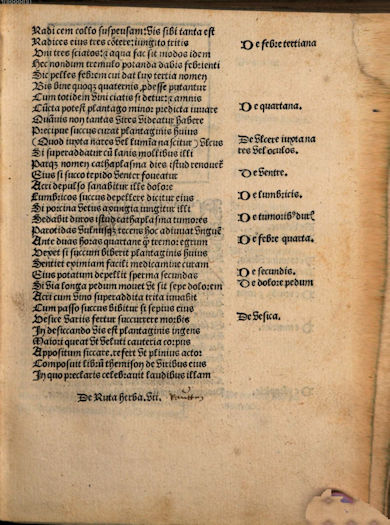 Radicem collo suspensam: vis sibi tanta est
Radices eius tres cōtere: iungito tritis
De febre tertiana
Uni tres sciatos: & aqua fac sit modus idem
Hec nondum tremulo potanda dabis febrienti
Sic pelles febrem cui dat lux tertia nomen
Bis bine quoqz quaternis pdesse putantur
Cum totidem vini ciatis si detur: & amnis
Cūcta potest plantago minor predicta iuuare
De quartana.
Quāuis non tantas vires videatur habere
Precipue succus curat plantaginis huius
(Quod iuxta nares vel lumīa nascitur) vlcus
De vlcere iuxta na
tres vel oculos.
Si superaddatur cū lanis mollibus illi
Parqz nomen cathaplasma dies istud renouet
Eius si succo tepido venter foueatur
De ventre.
Acri depulso sanabitur ille dolore
Lumbricos succus depellere dicitur eius
De lumbricis.
Si porcina vetus axungia iungitur illi
Sedabit duros istud cathaplasma tumores
De tumorib9
Parotidas vulnusqz recens hoc adiuuat vnguē
Ante duas horas quartane q̄ tremor egrum
De febre quarta.
Vexet si succum biberit plantaginis huius
Sentiet eximiam facili medicamine curam
Eius potatum depellit sperma secundas
De secundis.
Si via longa pedum mouet vt sit sepe dolorem
De dolore pedum
Acri cum vino superaddita trita iuuabit
Cum passo succus bibitur si sepius eius
Vesice variis fertur succurrere morbis
De vesica.
In desiccando vis est plantaginis ingens
Maior queat vt veluti cauteria corpus
Appositum siccare, refert vt plinius actor
Composuit librū themison de viribus eius
In quo preclaris celebrauit laudibus illam
De Ruta herba. vii.